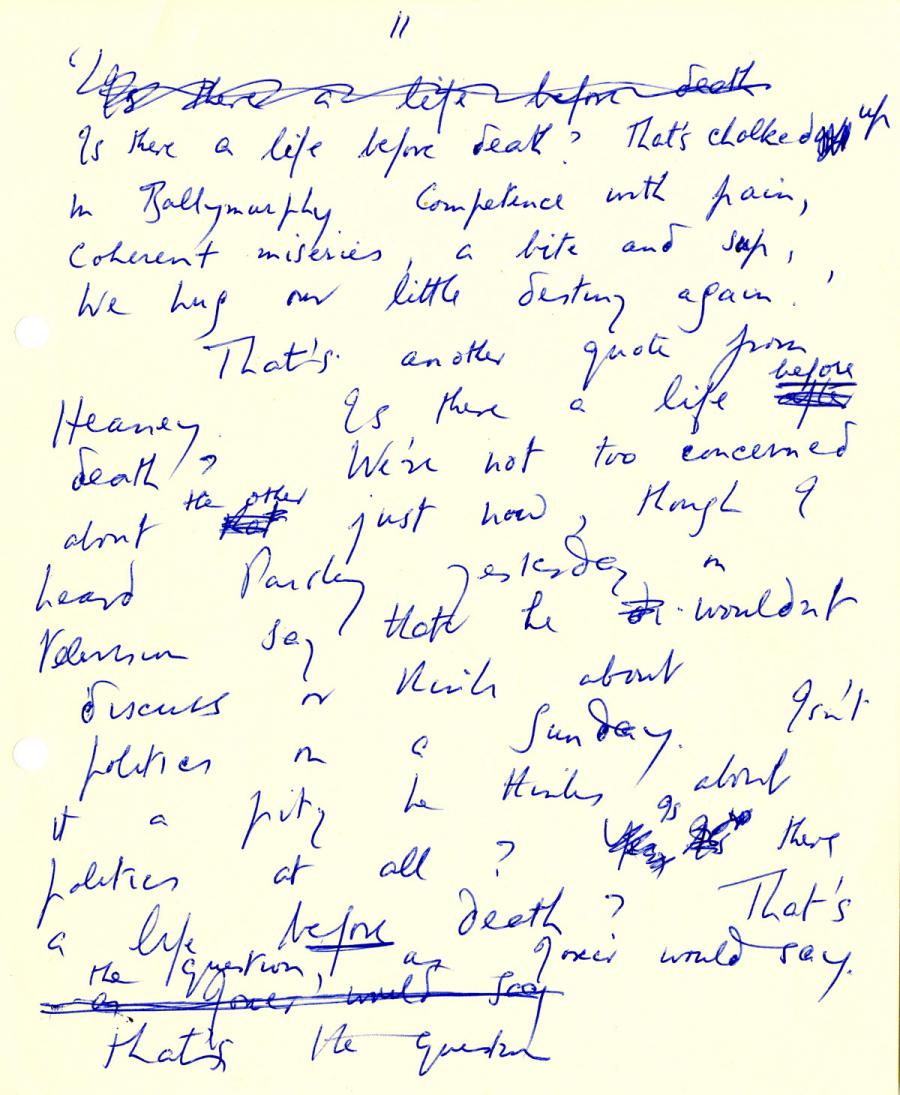 11
Is there a life before death
Is there a life before death? That's chalked up
in Ballymurphy Competence with pain,
Coherent miseries, a bite and sup,
We hug our little destiny again.'
That's another quote from
Heaney. Is there a life before
death? We're not too concerned
about the other just now, though I
heard Paisley yesterday on
Television say that he wouldn't
discuss or think about
politics on a Sunday. Isn't
it a pity he thinks about
politics at all? Is there
a life before death? That's
the question, as Joxer would say.
as Joxer would say
That's the question